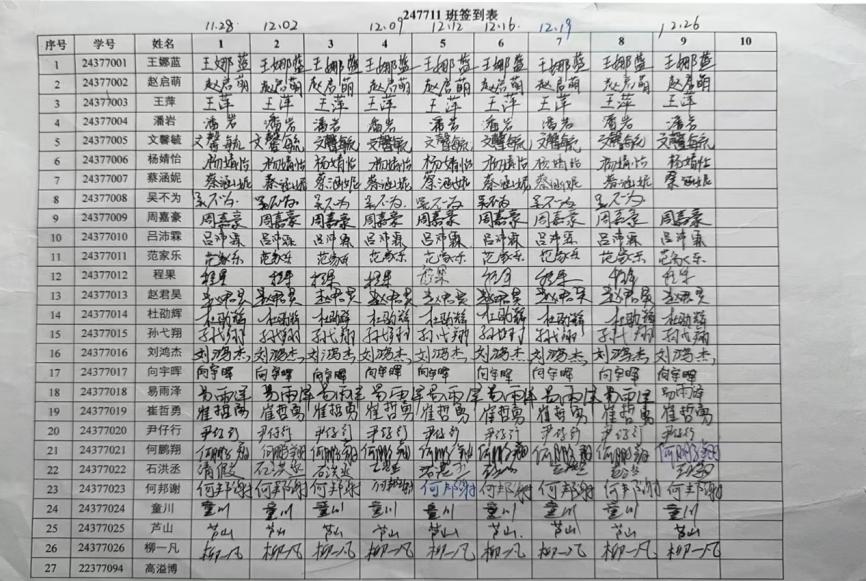 247711 班签到表
11.28 12.02 12.09 12.12 12.16. 12.19 12.26
序号 学号 姓名 1 2 3 4 5 6 7 8 9 10
1 24377001 王娜蓝 王娜蓝 王娜蓝 王娜蓝 王娜蓝 王娜蓝 王娜蓝 王娜蓝 王娜蓝 王娜蓝
2 24377002 赵启萌 赵启萌 赵启萌 赵启萌 赵启萌 赵启萌 赵启萌 赵启萌 赵启萌 赵启萌
3 24377003 王萍 王萍 王萍 王萍 王萍 王萍 王萍 王萍 王萍 王萍
4 24377004 潘岩 潘岩 潘岩 潘岩 潘岩 潘岩 潘岩 潘岩 潘岩 潘岩
5 24377005 文馨毓 文馨毓 文馨毓 文馨毓 文馨毓 文馨毓 文馨毓 文馨毓 文馨毓 文馨毓
6 24377006 杨婧怡 杨婧怡 杨婧怡 杨婧怡 杨婧怡 杨婧怡 杨婧怡 杨婧怡 杨婧怡 杨婧怡
7 24377007 蔡涵妮 蔡涵妮 蔡涵妮 蔡涵妮 蔡涵妮 蔡涵妮 蔡涵妮 蔡涵妮 蔡涵妮 蔡涵妮
8 24377008 吴不为 吴不为 吴不为 吴不为 吴不为 吴不为 吴不为 吴不为 吴不为
9 24377009 周嘉豪 周嘉豪 周嘉豪 周嘉豪 周嘉豪 周嘉豪 周嘉豪 周嘉豪 周嘉豪 周嘉豪
10 24377010 吕沛霖 吕沛霖 吕沛霖 吕沛霖 吕沛霖 吕沛霖 吕沛霖 吕沛霖 吕沛霖 吕沛霖
11 24377011 范家乐 范家乐 范家乐 范家乐 范家乐 范家乐 范家乐 范家乐 范家乐 范家乐
12 24377012 程果 程果 程果 程果 程果 程果 程果 程果 程果 程果
13 24377013 赵君昊 赵君昊 赵君昊 赵君昊 赵君昊 赵君昊 赵君昊 赵君昊 赵君昊 赵君昊
14 24377014 杜劭辉 杜劭辉 杜劭辉 杜劭辉 杜劭辉 杜劭辉 杜劭辉 杜劭辉 杜劭辉 杜劭辉
15 24377015 孙弋翔 孙弋翔 孙弋翔 孙弋翔 孙弋翔 孙弋翔 孙弋翔 孙弋翔 孙弋翔 孙弋翔
16 24377016 刘鸿杰 刘鸿杰 刘鸿杰 刘鸿杰 刘鸿杰 刘鸿杰 刘鸿杰 刘鸿杰 刘鸿杰 刘鸿杰
17 24377017 向宇晖 向宇晖 向宇晖 向宇晖 向宇晖 向宇晖 向宇晖 向宇晖 向宇晖 向宇晖
18 24377018 易雨泽 易雨泽 易雨泽 易雨泽 易雨泽 易雨泽 易雨泽 易雨泽 易雨泽 易雨泽
19 24377019 崔哲勇 崔哲勇 崔哲勇 崔哲勇 崔哲勇 崔哲勇 崔哲勇 崔哲勇 崔哲勇 崔哲勇
20 24377020 尹仔行 尹仔行 尹仔行 尹仔行 尹仔行 尹仔行 尹仔行 尹仔行 尹仔行 尹仔行
21 24377021 何鹏翔 何鹏翔 何鹏翔 何鹏翔 何鹏翔 何鹏翔 何鹏翔 何鹏翔 何鹏翔 何鹏翔
22 24377022 石洪丞 石洪丞 石洪丞
23 24377023 何邦谢 何邦谢 何邦谢 何邦谢 何邦谢 何邦谢 何邦谢 何邦谢 何邦谢 何邦谢
24 24377024 童川 童川 童川 童川 童川 童川 童川 童川 童川 童川
25 24377025 芦山 芦山 芦山 芦山 芦山 芦山 芦山 芦山 芦山 芦山
26 24377026 柳一凡 柳一凡 柳一凡 柳一凡 柳一凡 柳一凡 柳一凡 柳一凡 柳一凡 柳一凡
27 22377094 高溢博